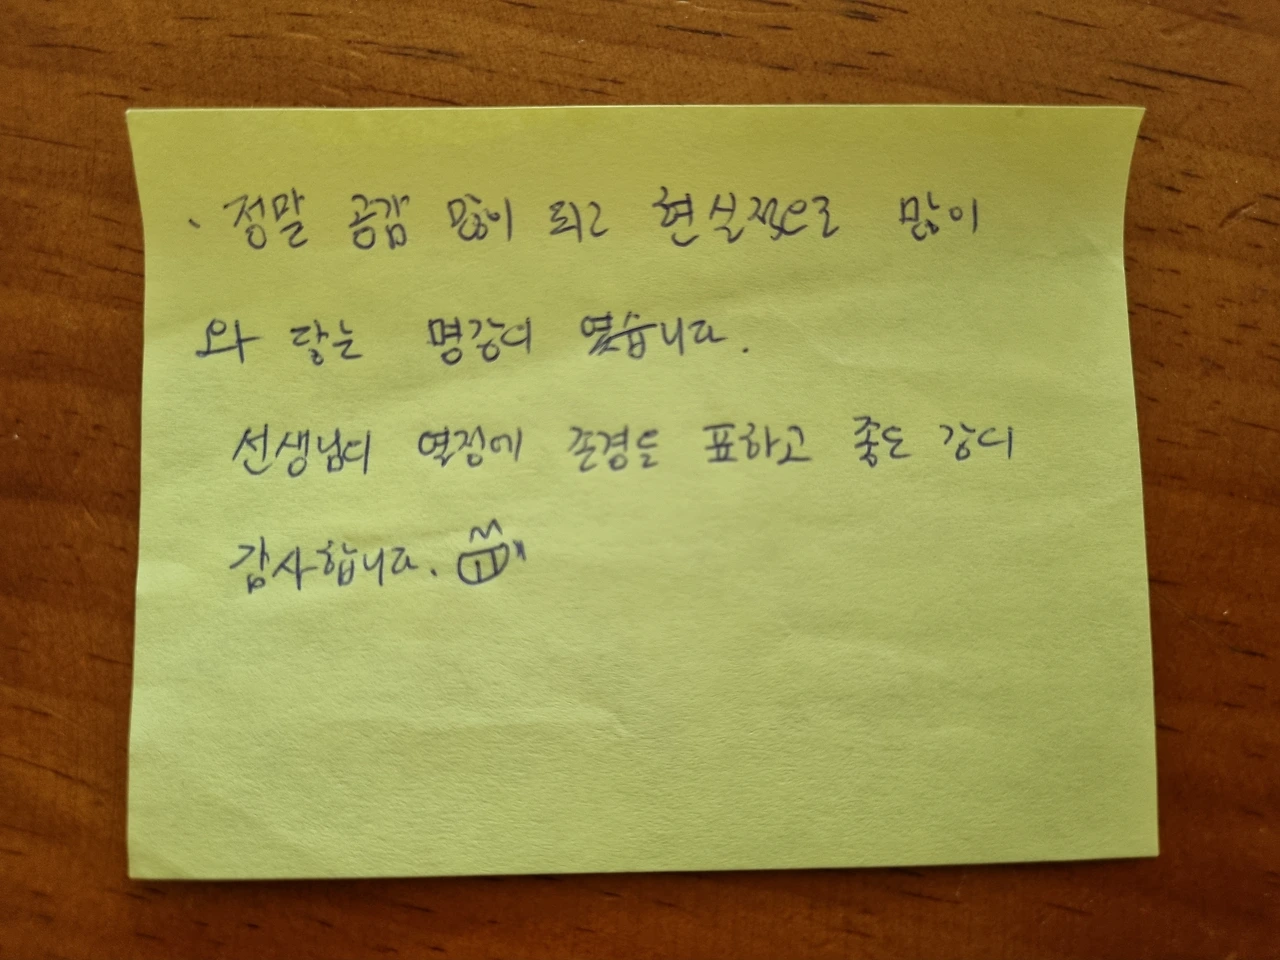 정말 공감 많이 되고 현실적으로 많이
와 닿는 명강의 였습니다.
선생님의 열정에 존경을 표하고 좋은 강의
감사합니다.